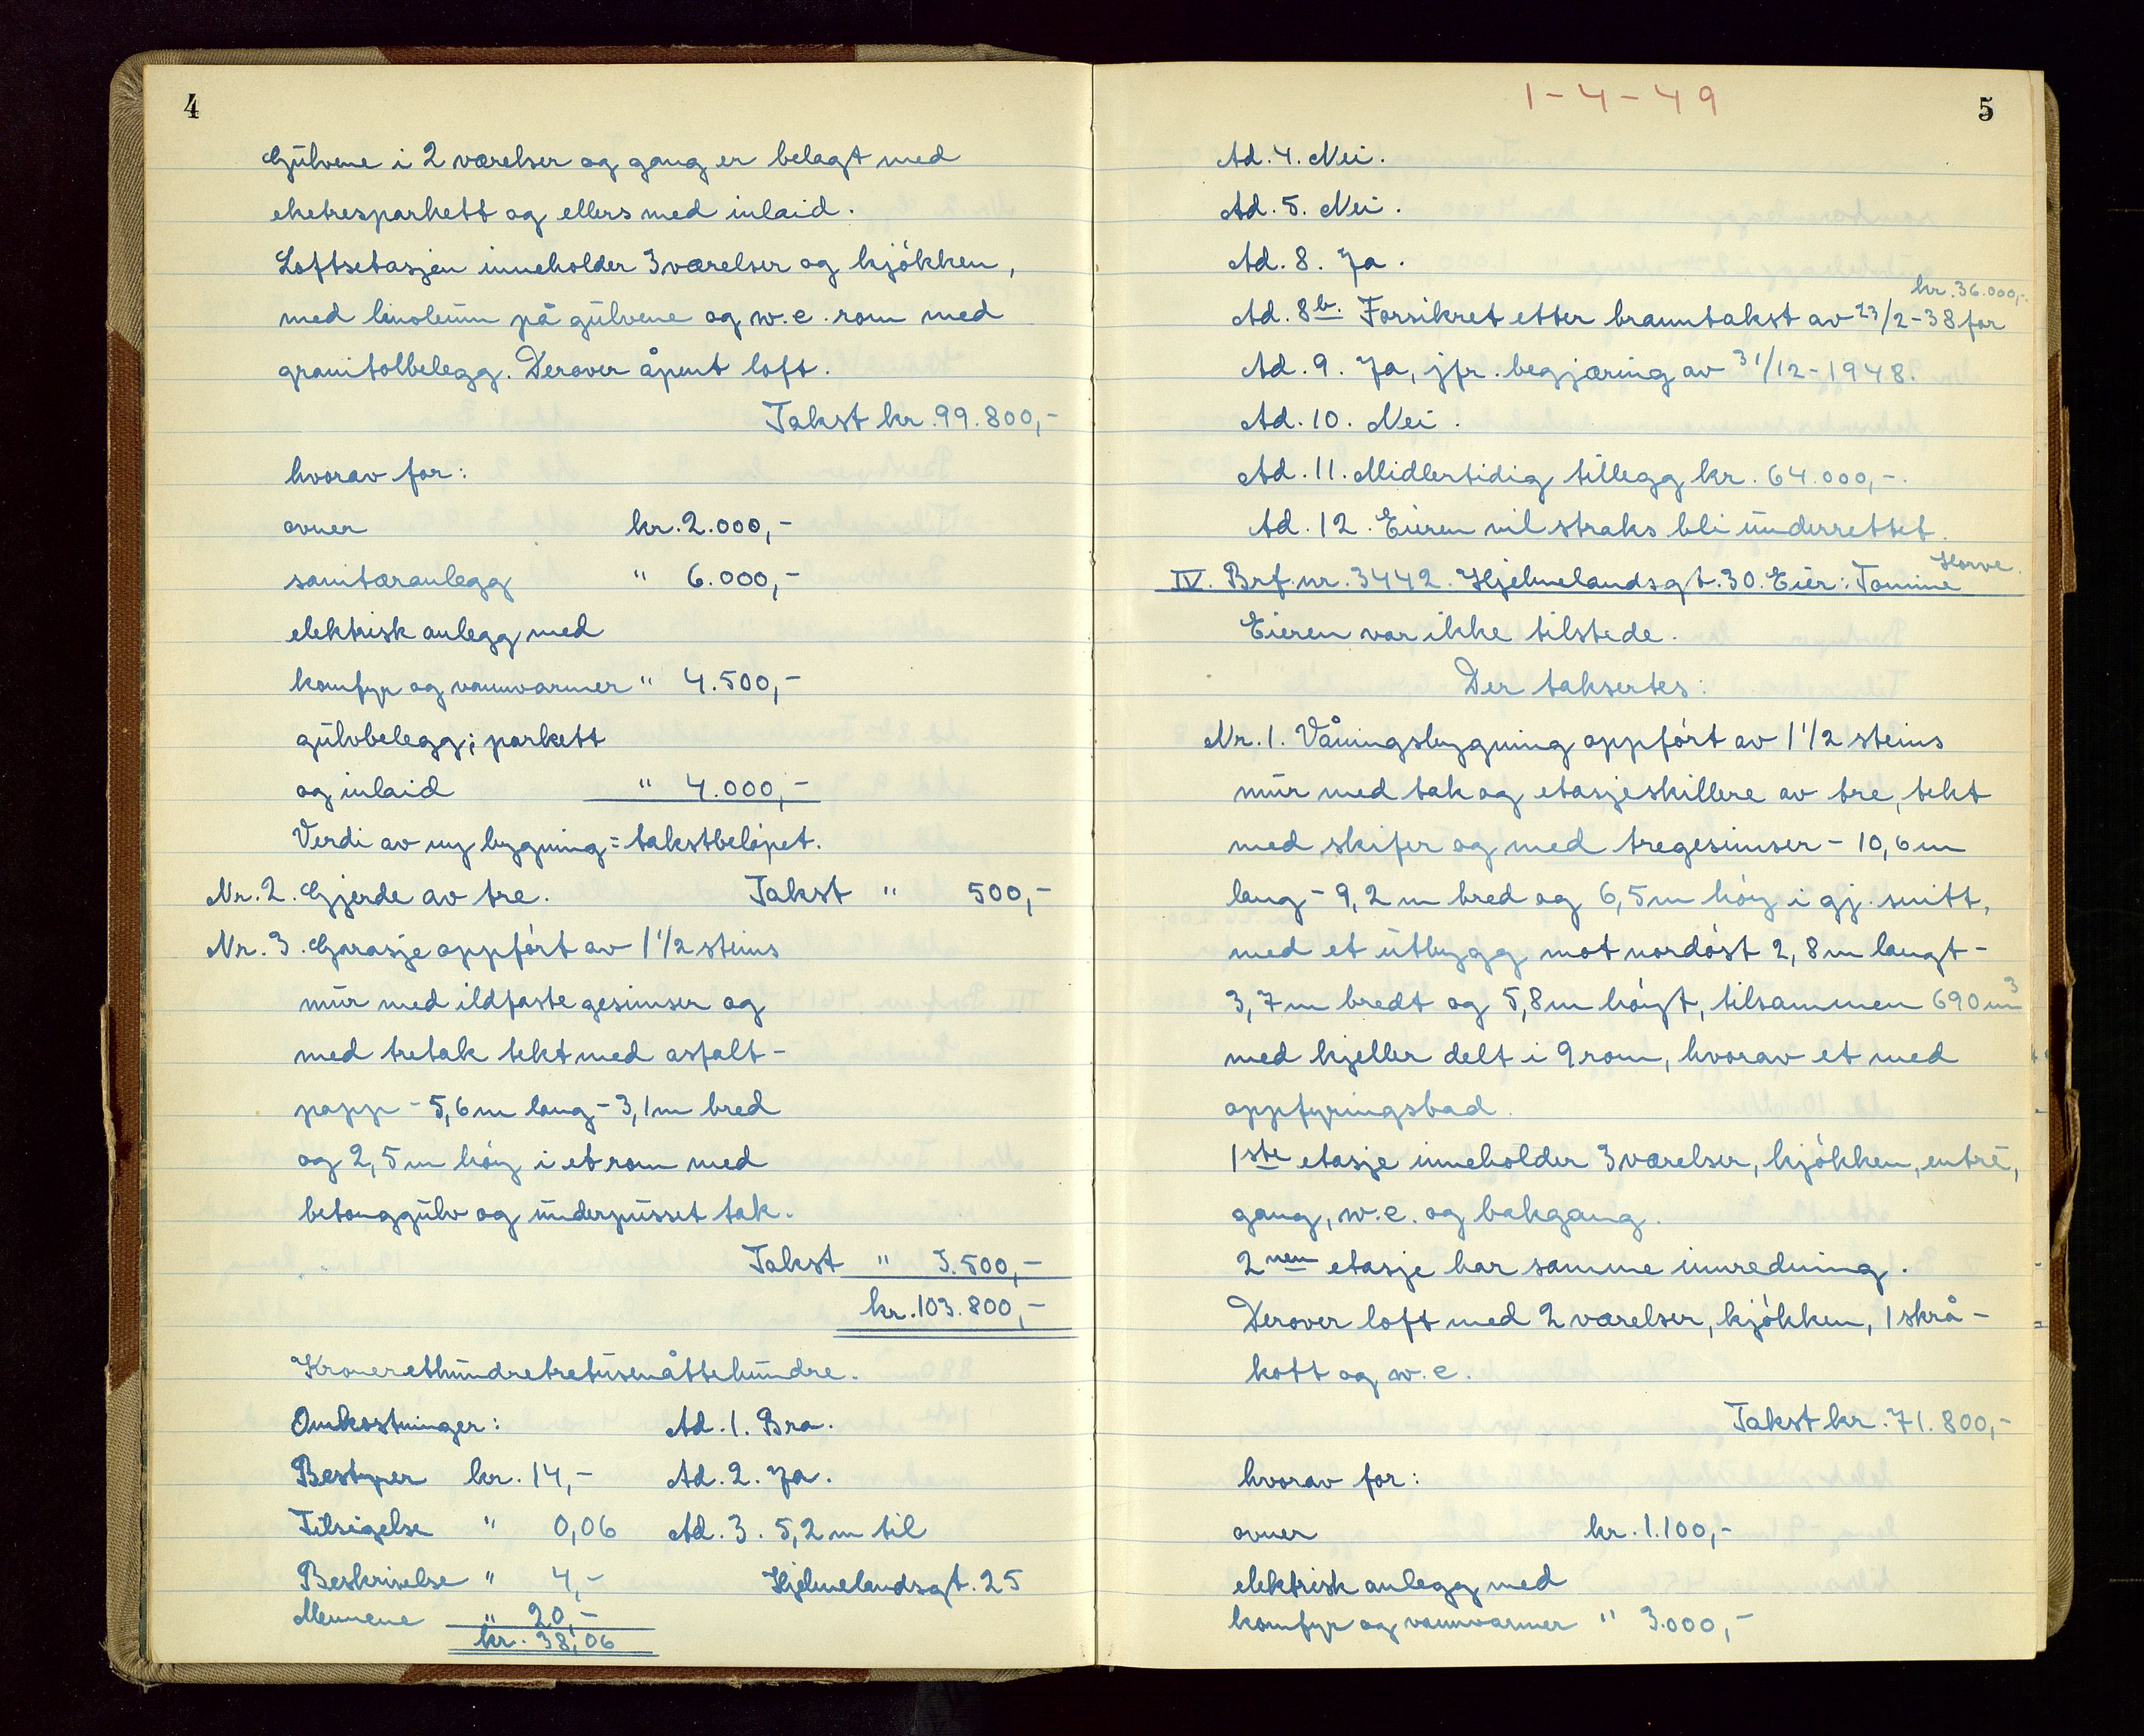 4
Gülvene i 2 værelser og gang er belagt med
eketresparkett og ellers med inlaid.
Loftsetasjen inneholder 3 værelser og kjøkken,
med linoleum på gülvene og w.c. rom med
granitolbelegg. Derover åpent loft.
Takst kr. 99.800,-
hvorav for:
ovner kr. 2.000,-
sanitæranlegg " 6.000,-
elektrisk anlegg med
komfyr og vannvarmer " 4.500,-
gülvbelegg; parkett
og inlaid " 4.000,-
Verdi av ny bygning = takstbeløpet.
Nr. 2. Gjerde av tre. Takst " 500,-
Nr. 3. Garasje oppført av 1 1/2 steins
mür med ildfaste gesimser og
med tretak tekt med asfalt-
papp - 5,6 m lang - 3,1 m bred
og 2,5 m høy i et rom med
betonggülv og ünderpüsset tak.
Takst " 3.500,-
kr. 103.800,-
Kroneretthündretretüsenåttehündre.
Omkostninger: Ad. 1. Bra.
Bestyrer kr. 14,- Ad. 2. Ja.
Tilsigelse " 0,06 Ad. 3. 5,2 m til
Beskrivelse " 4,- Hjelmelandsgt. 25
Mennene " 20,-
kr. 38,06
1-4-49
5
Ad. 4. Nei.
Ad. 5. Nei.
Ad. 8. Ja.
Ad. 8b. Forsikret etter branntakst av 23/2-38 for kr. 36.000,-.
Ad. 9. Ja, jfr. begjæring av 31/12-1948.
Ad. 10. Nei.
Ad. 11. Midlertidig tillegg kr. 64.000,-.
Ad. 12. Eieren vil straks bli ünderrettet.
IV. Brf. nr. 3442. Hjelmelandsgt. 30. Eier: Tomine Horve.
Eieren var ikke tilstede.
Der taksertes:
Nr. 1. Våningsbygning oppført av 1 1/2 steins
mür med tak og etasjeskillere av tre, tekt
med skifer og med tregesimser - 10,6 m
lang - 9,2 m bred og 6,5 m høy i gj. snitt,
med et ütbygg mot nordøst 2,8 m langt -
3,7 m bredt og 5,8 m høyt, tilsammen 690 m3
med kjeller delt i 9 rom, hvorav et med
oppfyringsbad.
1ste etasje inneholder 3 værelser, kjøkken, entré,
gang, w.c. og bakgang.
2nen etasje har samme innredning.
Derover loft med 2 værelser, kjøkken, 1 skrå-
kott og w.c.
Takst kr. 71.800,-
hvorav for:
ovner kr. 1.100,-
elektrisk anlegg med
komfyr og vannvarmer " 3.000,-